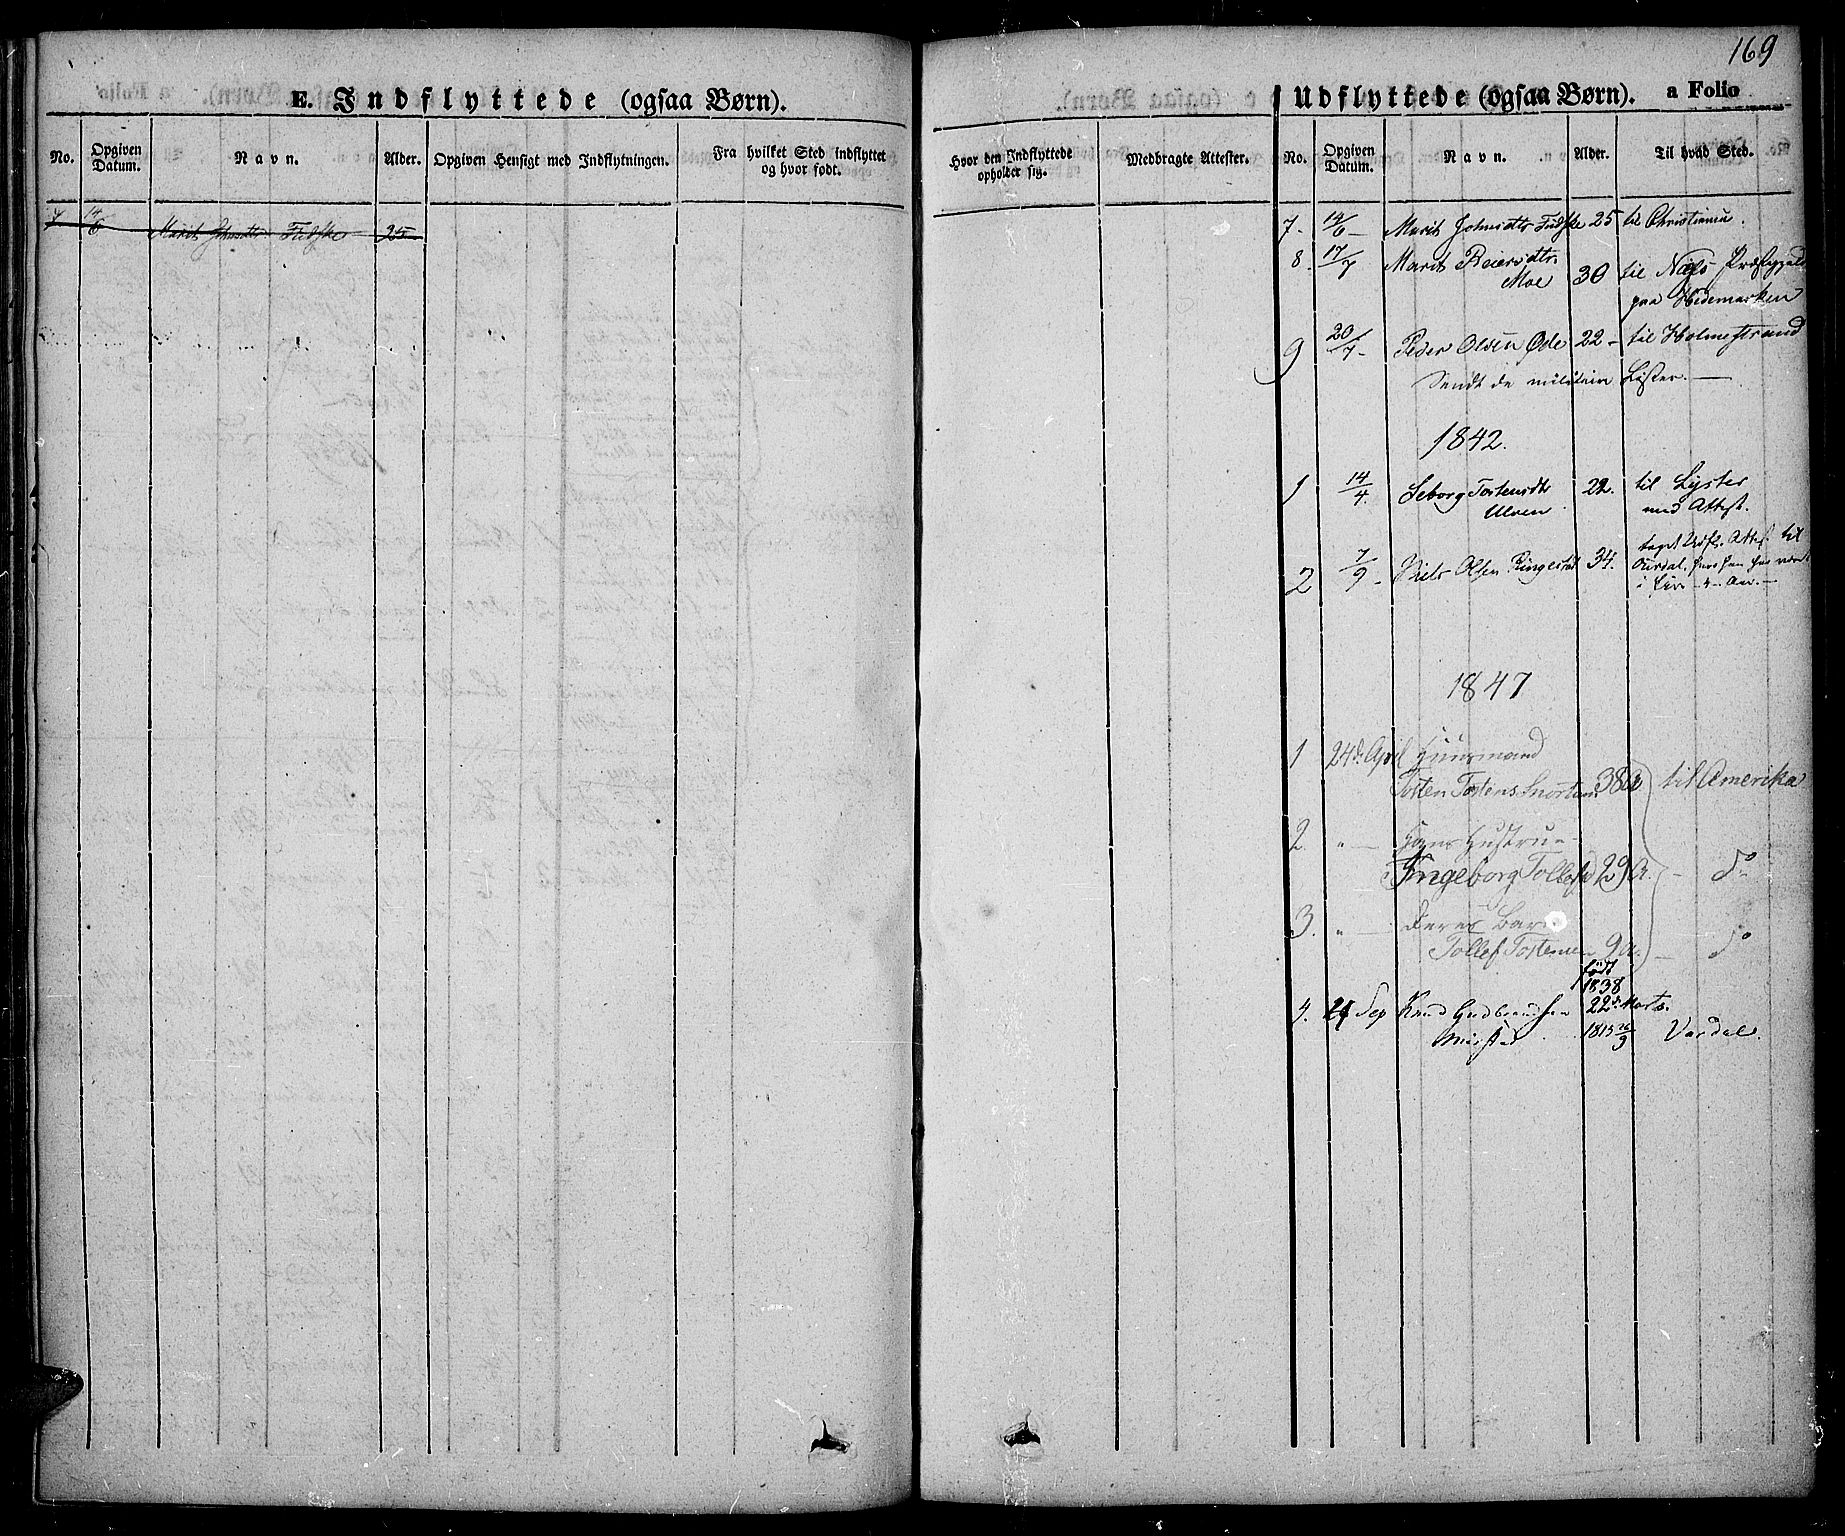 169
E. Indflyttede (ogsaa Børn).
No. Opgiven Datum. Navn. Alder. Opgiven Hensigt med Indflytningen. Fra hvilket Sted indflyttet og hvor født.
7 14/6 Marit Johnsdtr Fridske 25
Hvor den Indflyttede opholder sig. Medbragte Attester.
Udflyttede (ogsaa Børn). a Folio
No. Opgiven Datum. Navn. Alder. Til hvad Sted.
7- 14/6- Marit Johnsdtr Fridske 25 til Christiania.
8. 17/7 Marit Reiersdtr
Moe 30 til Næs Præstegjeld
paa Hedemarken
9 20/7- Peder Olsen Øde 22- til Holmestrand
Sendt de militaire Lister.
1842.
1 14/4. Seborg Tostensdtr 22. til Lyster
Ulven med Attest.
2 7/9- Niels Olsen Ringestad 34. taget Udfl. Attest til
Aurdal, hvor han har været
i
1847
1 24de April Huusmand
Tosten Tostens 38 a til Amerika
2. "— Hans Hustrue
Ingeborg Tollefsd 29 a. - do
3. "— Deres Barn
Tollef Tostensen 9 a. - do
født
1838
22de Marts.
4. 21 Sep Knud Gudbrandsen
1815 26/9 Vardal.